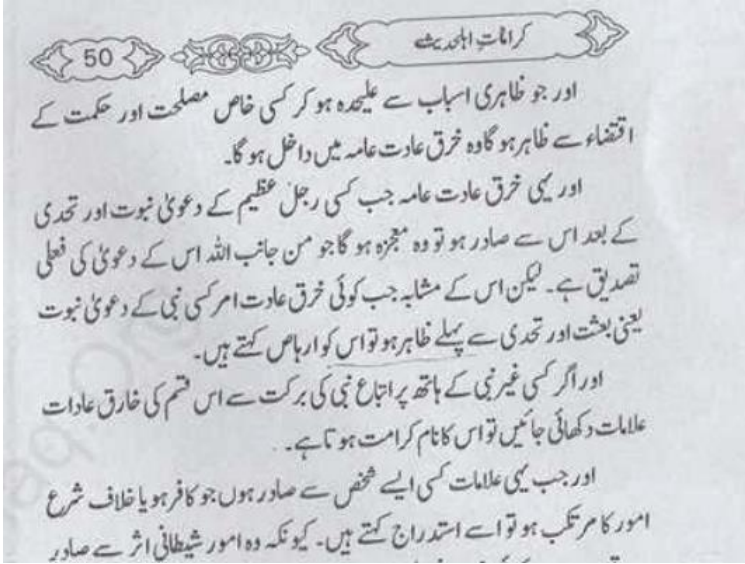 کراماتِ اہلحدیث
50
اور جو ظاہری اسباب سے علیحدہ ہو کر کسی خاص مصلحت اور حکمت کے
اقتضاء سے ظاہر ہو گا وہ خرق عادت عامہ میں داخل ہو گا۔
اور یہی خرق عادت عامہ جب کسی رجل عظیم کے دعویٰ نبوت اور تحدی
کے بعد اس سے صادر ہو تو وہ معجزہ ہو گا جو من جانب اللہ اس کے دعویٰ کی فعلی
تصدیق ہے۔ لیکن اس کے مشابہ جب کوئی خرق عادت امر کسی نبی کے دعویٰ نبوت
یعنی بعثت اور تحدی سے پہلے ظاہر ہو تو اس کو ارہاص کہتے ہیں۔
اور اگر کسی غیر نبی کے ہاتھ پر اتباع نبی کی برکت سے اس قسم کی خارق عادات
علامات دکھائی جائیں تو اس کا نام کرامت ہو تا ہے۔
اور جب یہی علامات کسی ایسے شخص سے صادر ہوں جو کافر ہو یا خلاف شرع
امور کا مرتکب ہو تو اسے استدراج کہتے ہیں۔ کیونکہ وہ امور شیطانی اثر سے صادر